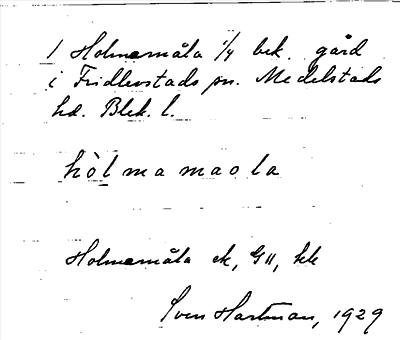 1 Holmamåla 1/4 bek. gård
i Fridlevstads sn. Medelstads
hd. Blek. l.
hòlmamaola
Holmamåla ek, G11, kk
Sven Hartman, 1929